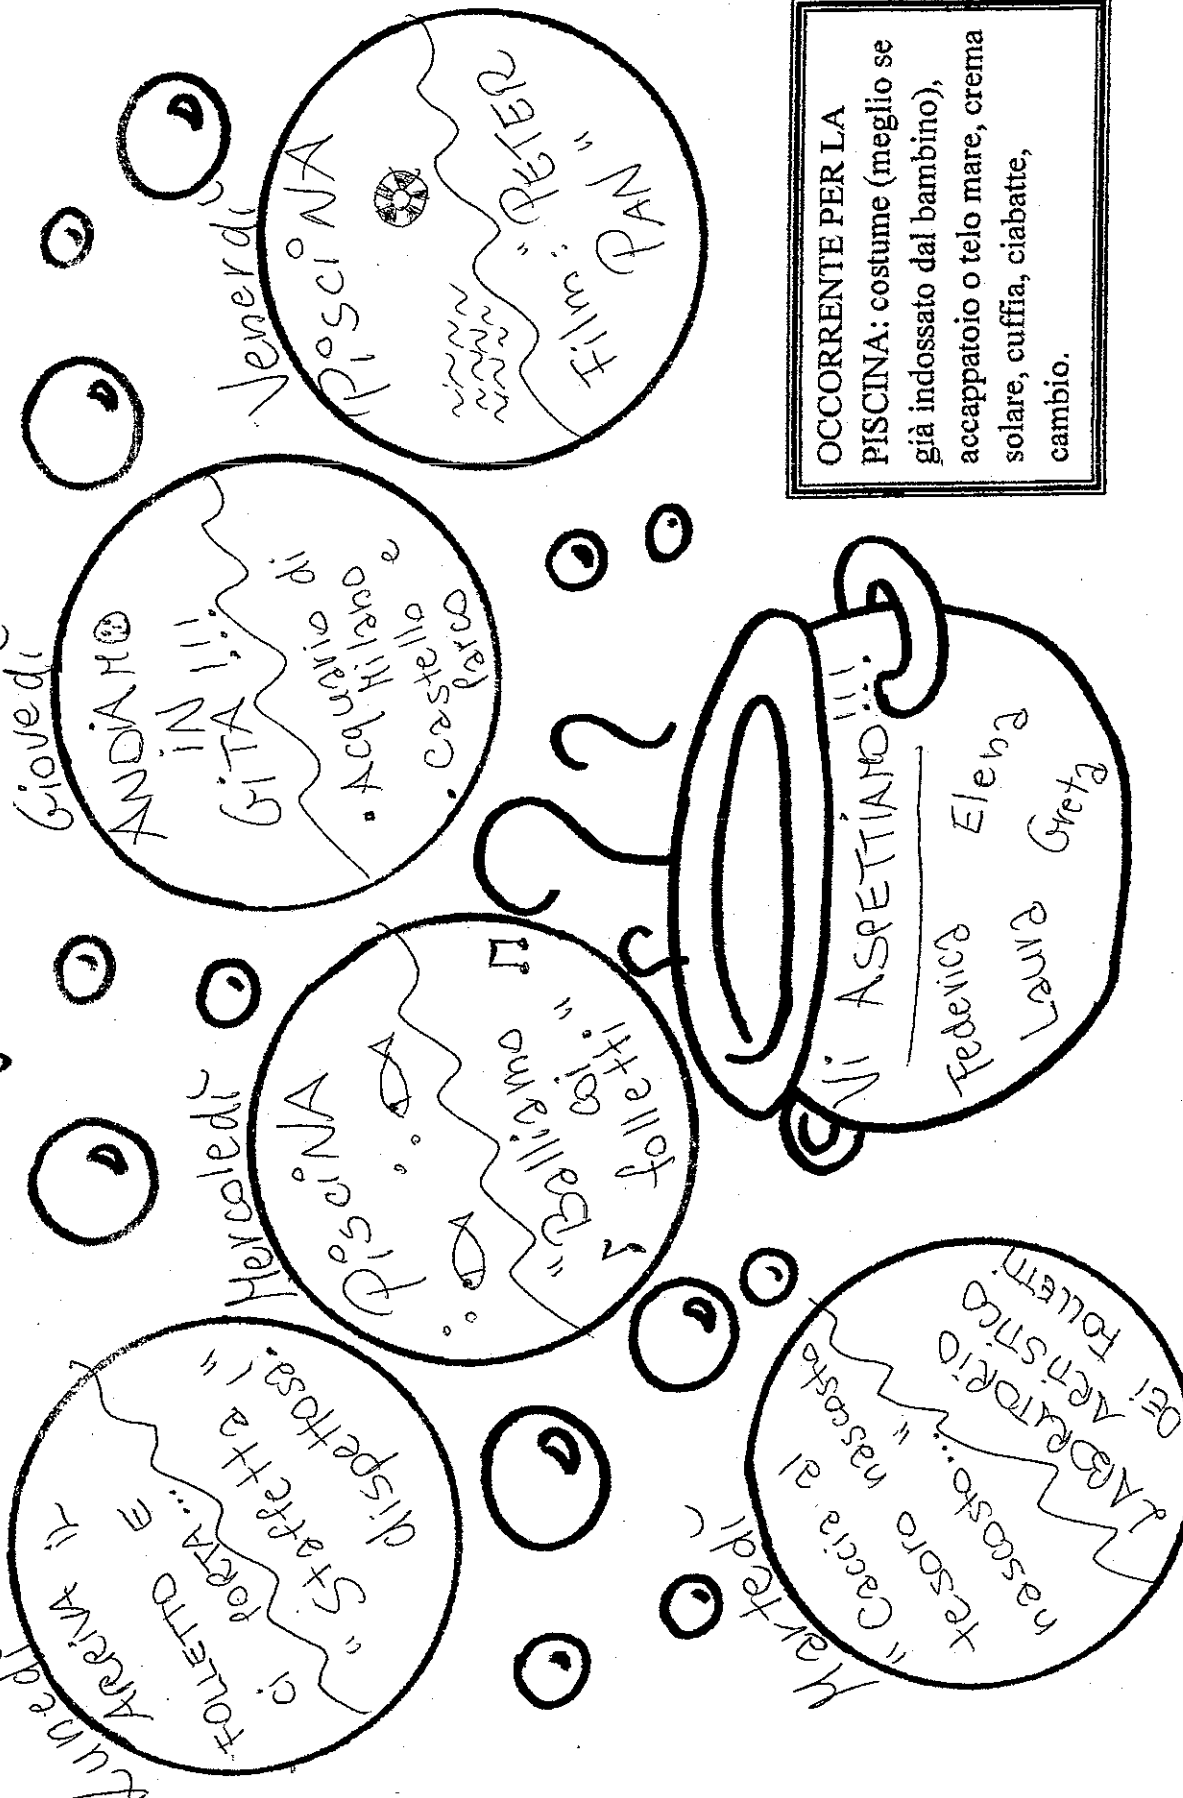 Lunedì
ARRIVA IL
FOLLETTO E
CI PORTA...
"Staffetta
dispettosa!"
Martedì
"Caccia al
tesoro nascosto
nascosto..."
LABORATORIO
ARTISTICO
DEI FOLLETTI
Mercoledì
PiSCiNA
"Balliamo
coi
folletti"
Giovedì
ANDIAMO
iN
GiTA!!!
• Acquario di
Milano e
• Castello
Parco
Venerdì
PiSCiNA
Film: "PETER
PAN"
Vi ASPETTIAMO!!!
Federica Elena
Laura Greta
OCCORRENTE PER LA
PISCINA: costume (meglio se
già indossato dal bambino),
accappatoio o telo mare, crema
solare, cuffia, ciabatte,
cambio.